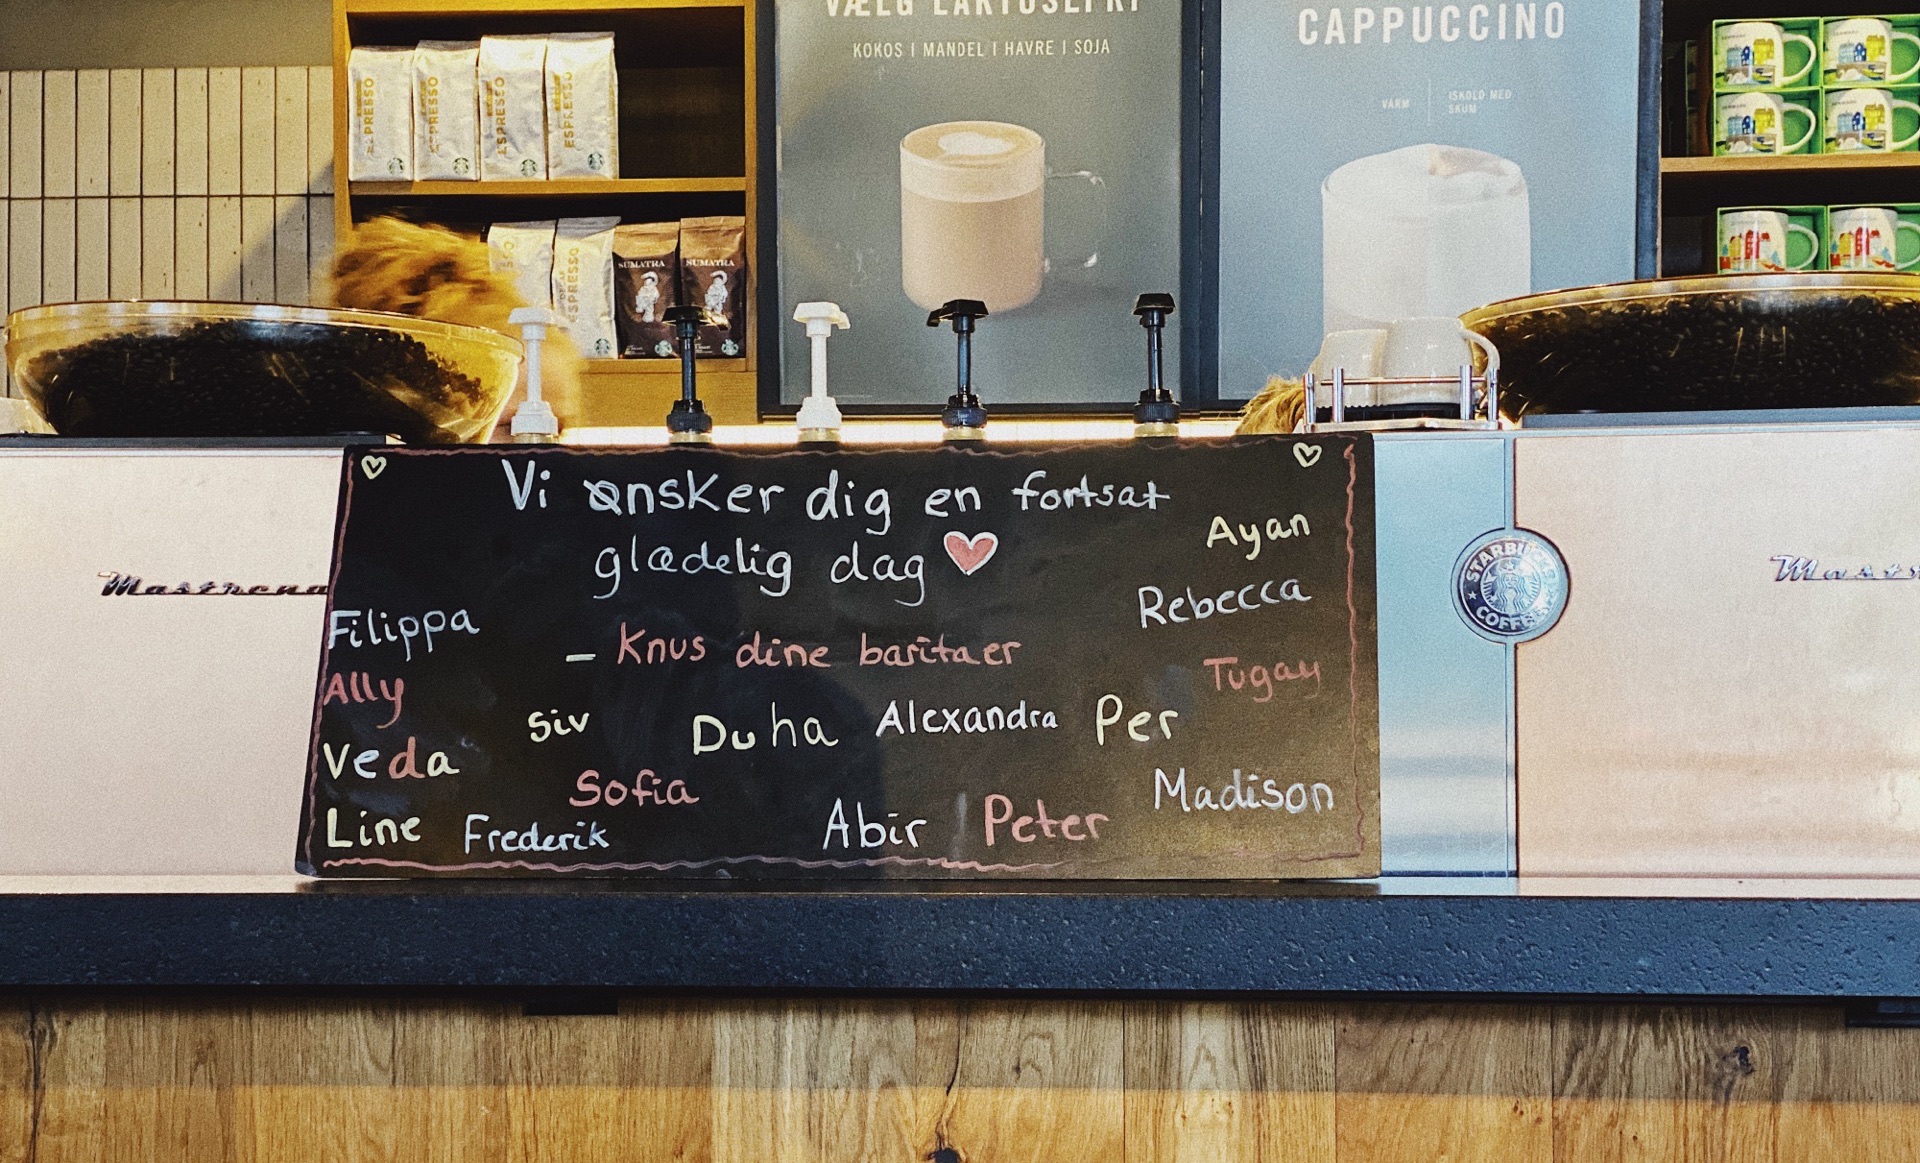 VÆLG LAKTOSEFRI
KOKOS | MANDEL | HAVRE | SOJA
CAPPUCCINO
VARM
ISKOLD MED
SKUM
ESPRESSO
ESPRESSO
ESPRESSO
ESPRESSO
ESPRESSO
SUMATRA
SUMATRA
Vi ønsker dig en fortsat
glædelig dag
- Knus dine baritaer
Ayan
Rebecca
Tugay
Filippa
Ally
Veda
Line
Frederik
Siv
Sofia
Duha
Alexandra
Per
Abir
Peter
Madison
Mastrena
STARBUCKS
COFFEE